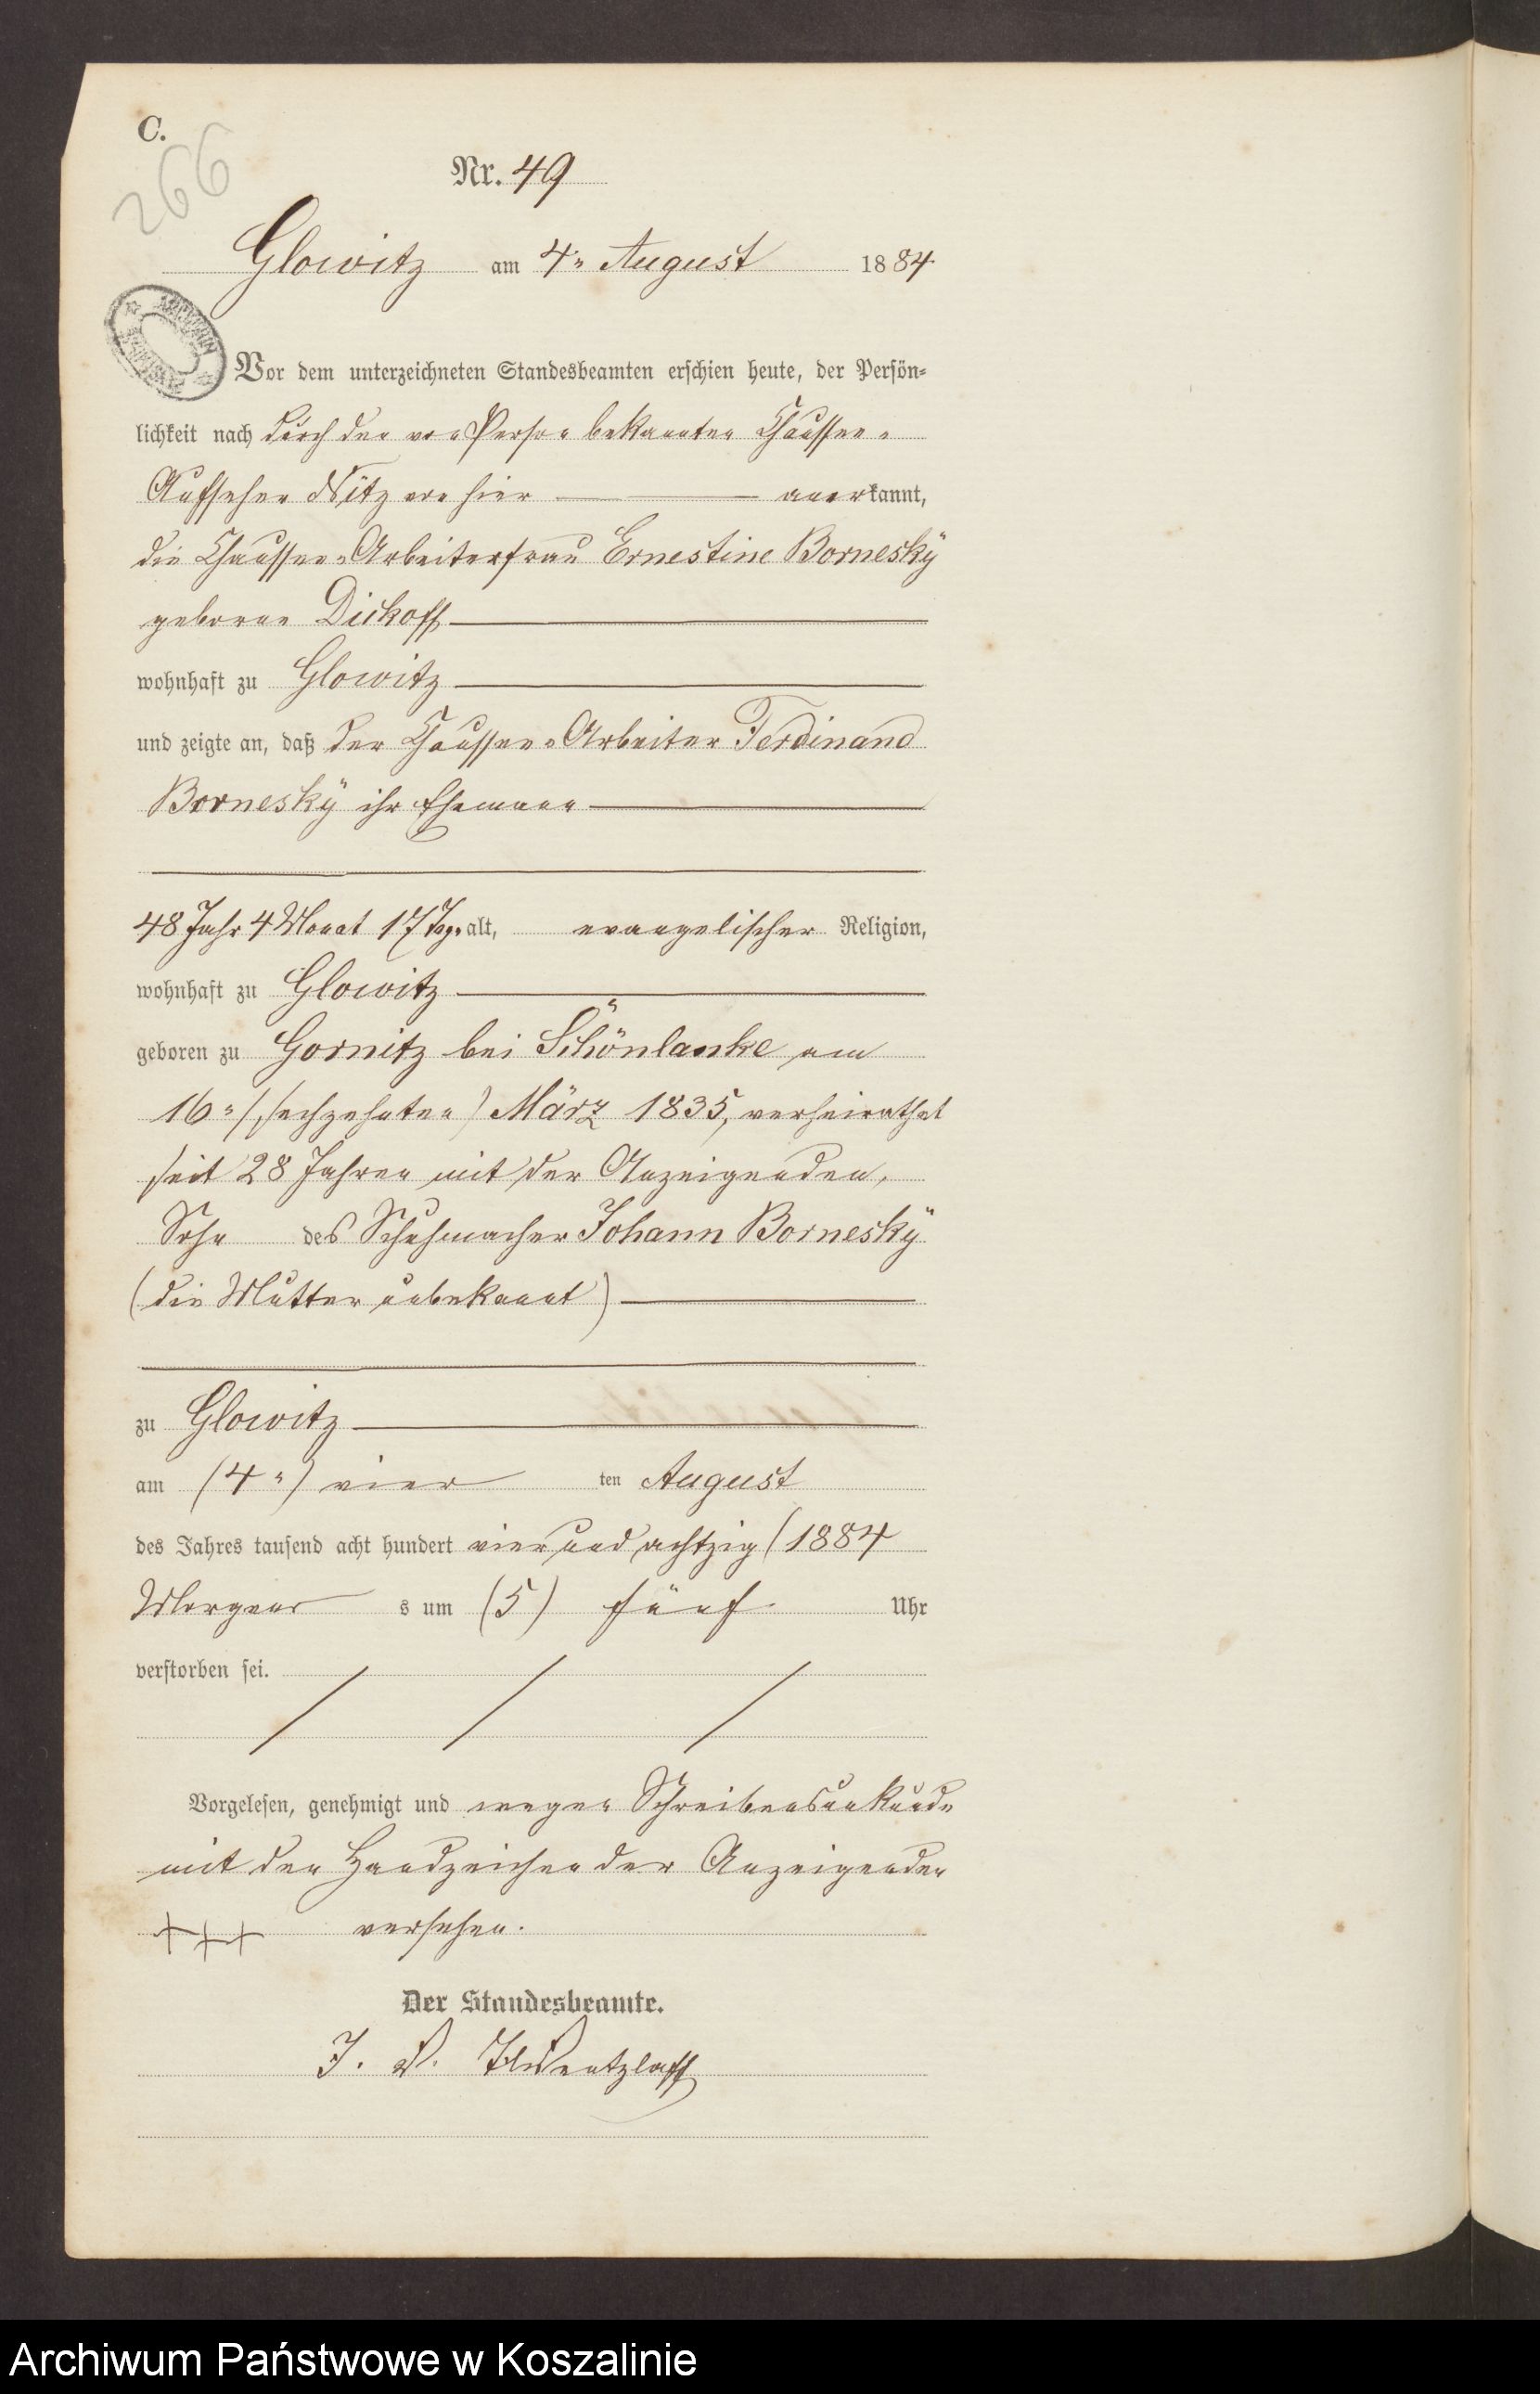 C.
266
Nr. 49
Glowitz am 4. August 1884
Vor dem unterzeichneten Standesbeamten erschien heute, der Persön-
lichkeit nach durch den von Person bekannten Chaussee-
Aufseher Nitz von hier anerkannt,
die Chaussee-Arbeiterfrau Ernestine Bornesky
geborne Dickoff
wohnhaft zu Glowitz
und zeigte an, daß der Chaussee-Arbeiter Ferdinand
Bornesky ihr Ehemann
48 Jahr 4 Monat 17 Tag. alt, evangelischer Religion,
wohnhaft zu Glowitz
geboren zu Gornitz bei Schönlanke am
16. (sechzehnten) März 1835, verheirathet
seit 28 Jahren mit der Anzeigenden,
Sohn des Schuhmacher Johann Bornesky
(die Mutter unbekannt)
zu Glowitz
am (4.) vier ten August
des Jahres tausend acht hundert vier und achtzig (1884
Morgens s um (5) fünf Uhr
verstorben sei.
Vorgelesen, genehmigt und wegen Schreibensunkunde
mit den Handzeichen der Anzeigenden
+++ versehen.
Der Standesbeamte.
J. V. Wentzlaff
Archiwum Państwowe w Koszalinie